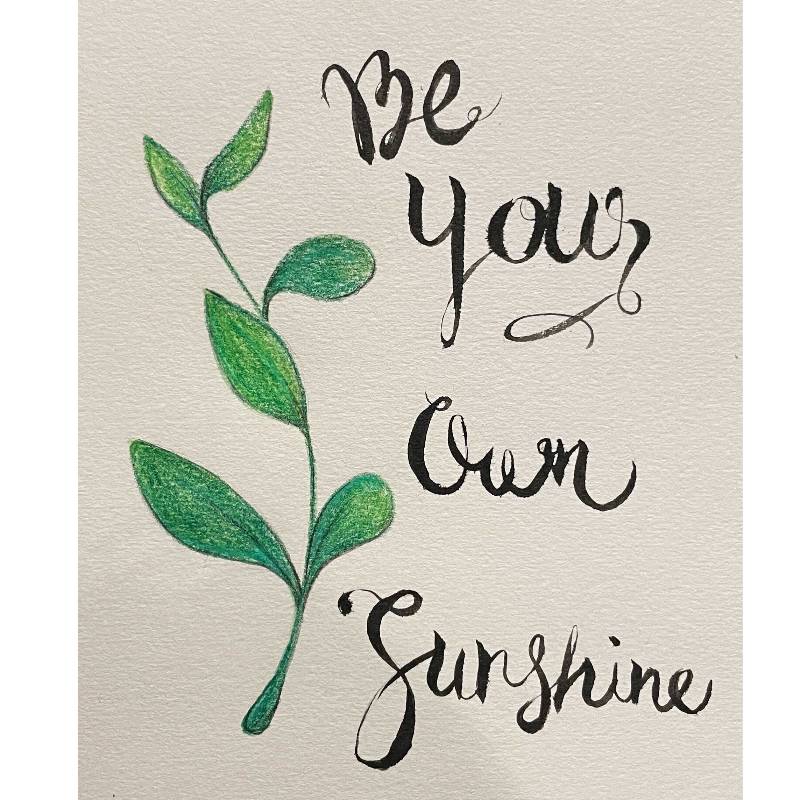 Be
Your
Own
Sunshine